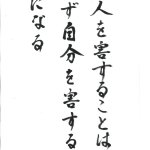 人を害することは
ず自分を害する
になる